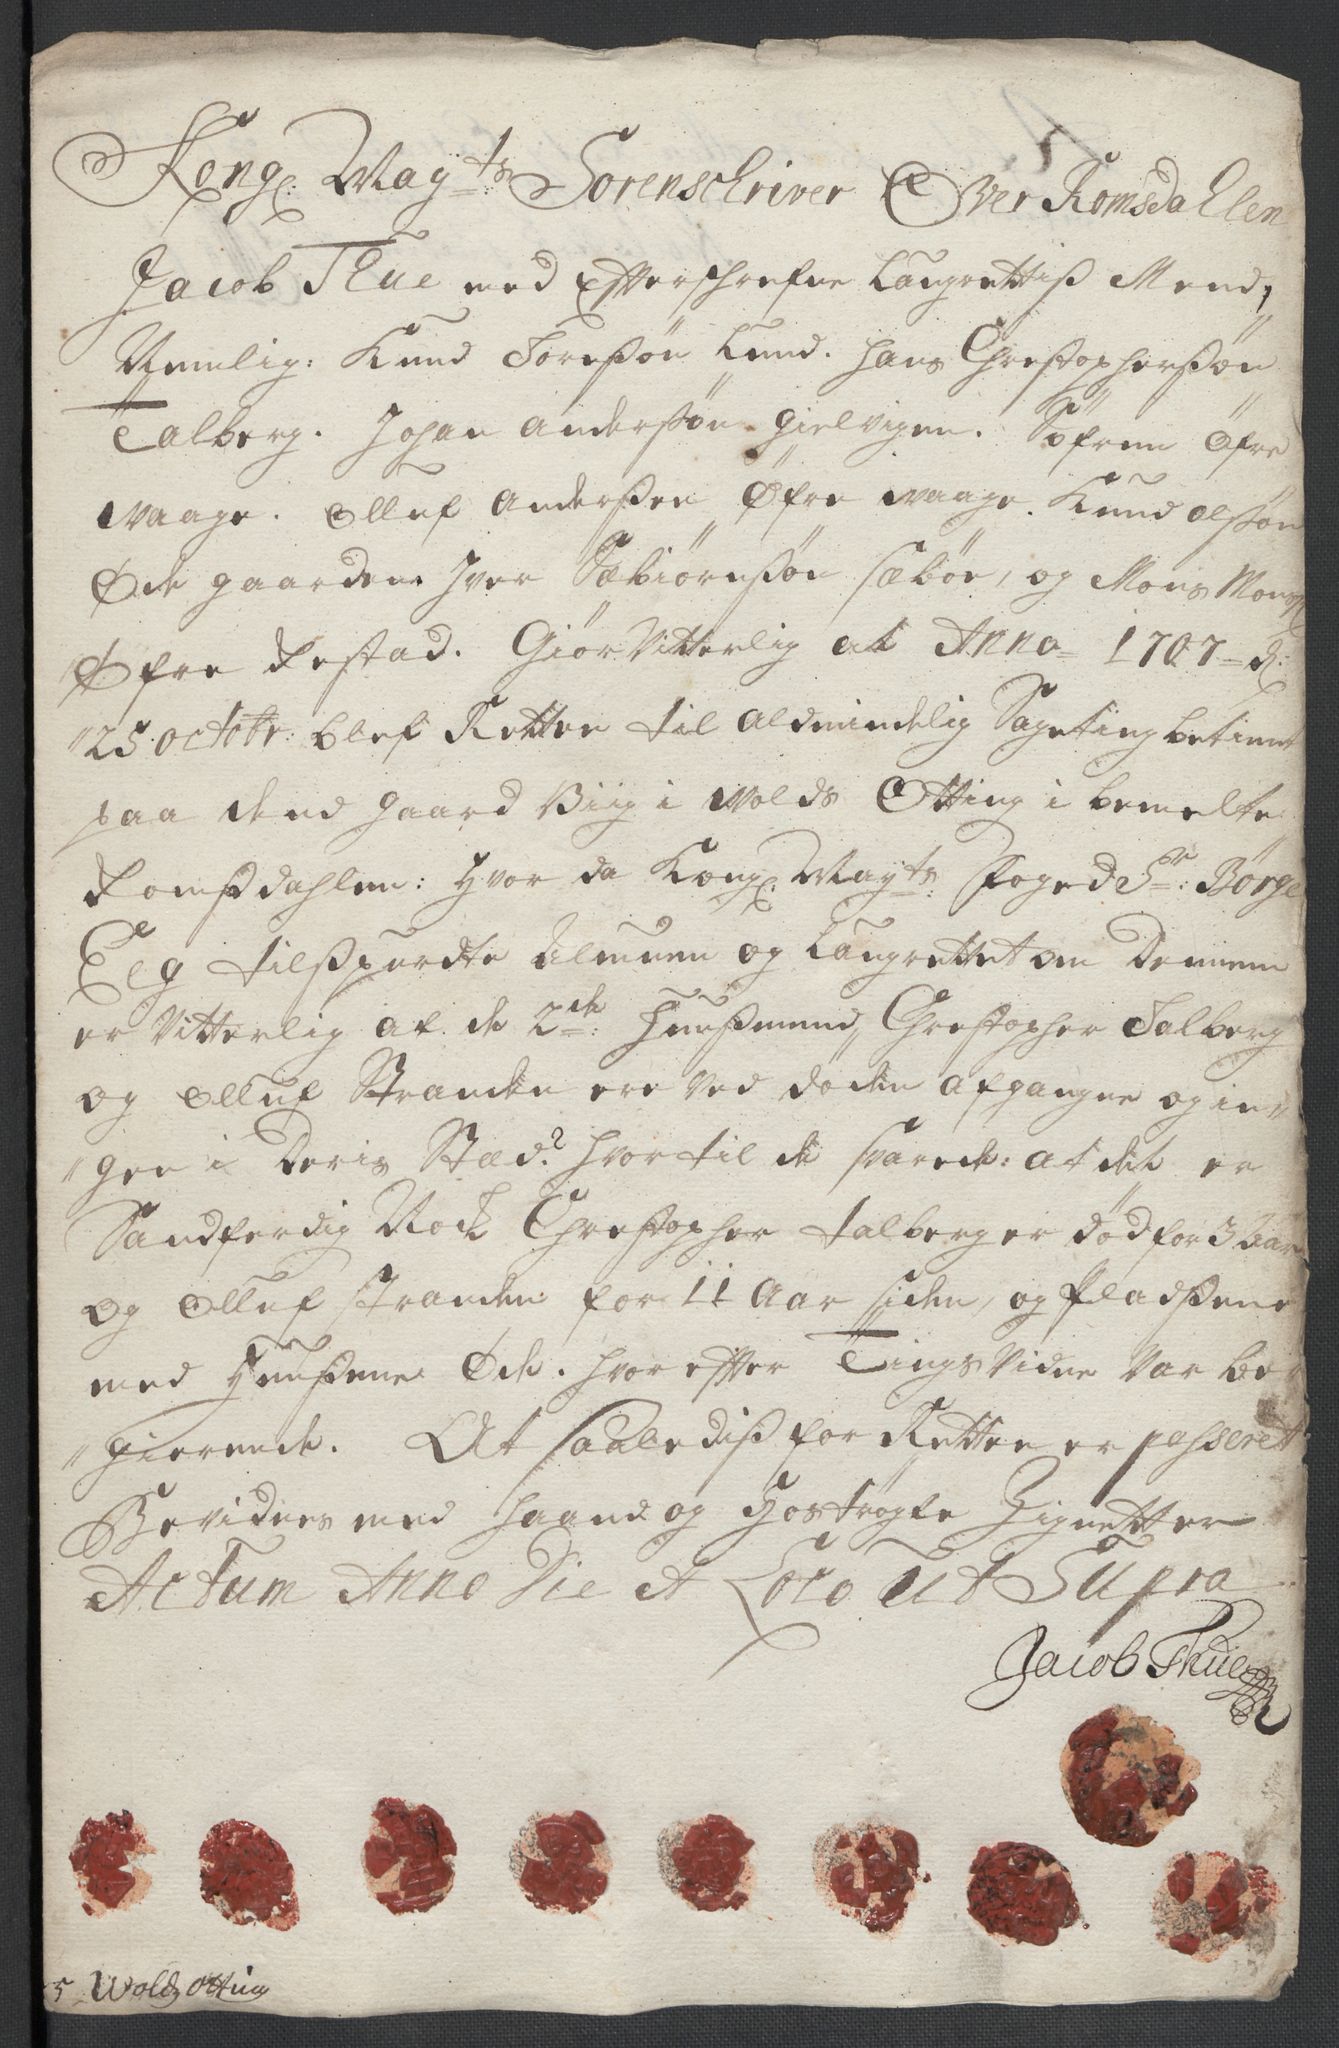 Kong: Mayts Sorenschriver Over Romsdahlen
Jacob Thue med Efterschrefne Laugrettis Mend,
Nemlig: Knud Toresøn Lund. Hans Chrestophersøn
Talberg. Johan Andersøn Hielvigen. Søfren Øfre
Waage. Olluf Andersen Øfre Waage. Knud Olsøn
Øde gaarden. Iver Sæbiørnsøn Sæbøe, og Mons Mons:
Øfre Restad. Giør Vitterlig at Anno 1707 d:
25 octobr: blef Retten til Aldmindelig Sageting betimt
paa dend gaard Viig i Wolds Otting i bemelte
Romsdahlen: Hvor da Kong: Mayts Foged Sr: Børge
Elg tilspurdte Almuen og Laugrettet om Dennem
er Vitterlig at de 2de: Huusmend, Chrestopher Talberg
og Olluf Stranden ere Ved døden afgangne og in-
gen i Deris Stæd? hvortil de svarede: at det er
Sandferdig Nock Chrestopher Talberg er død for 3 Aar
og Olluf Stranden for 11 Aar siden, og Pladsene
med Huusene Øde. hvorefter Tings Vidne Var be-
gierende. At saaledis for Retten er passeret
Bevidnes med haand og hostrøgte Zignetter
Actum Anno Die et Loco Ut Supra
Jacob Thue
5 Wolds Otting